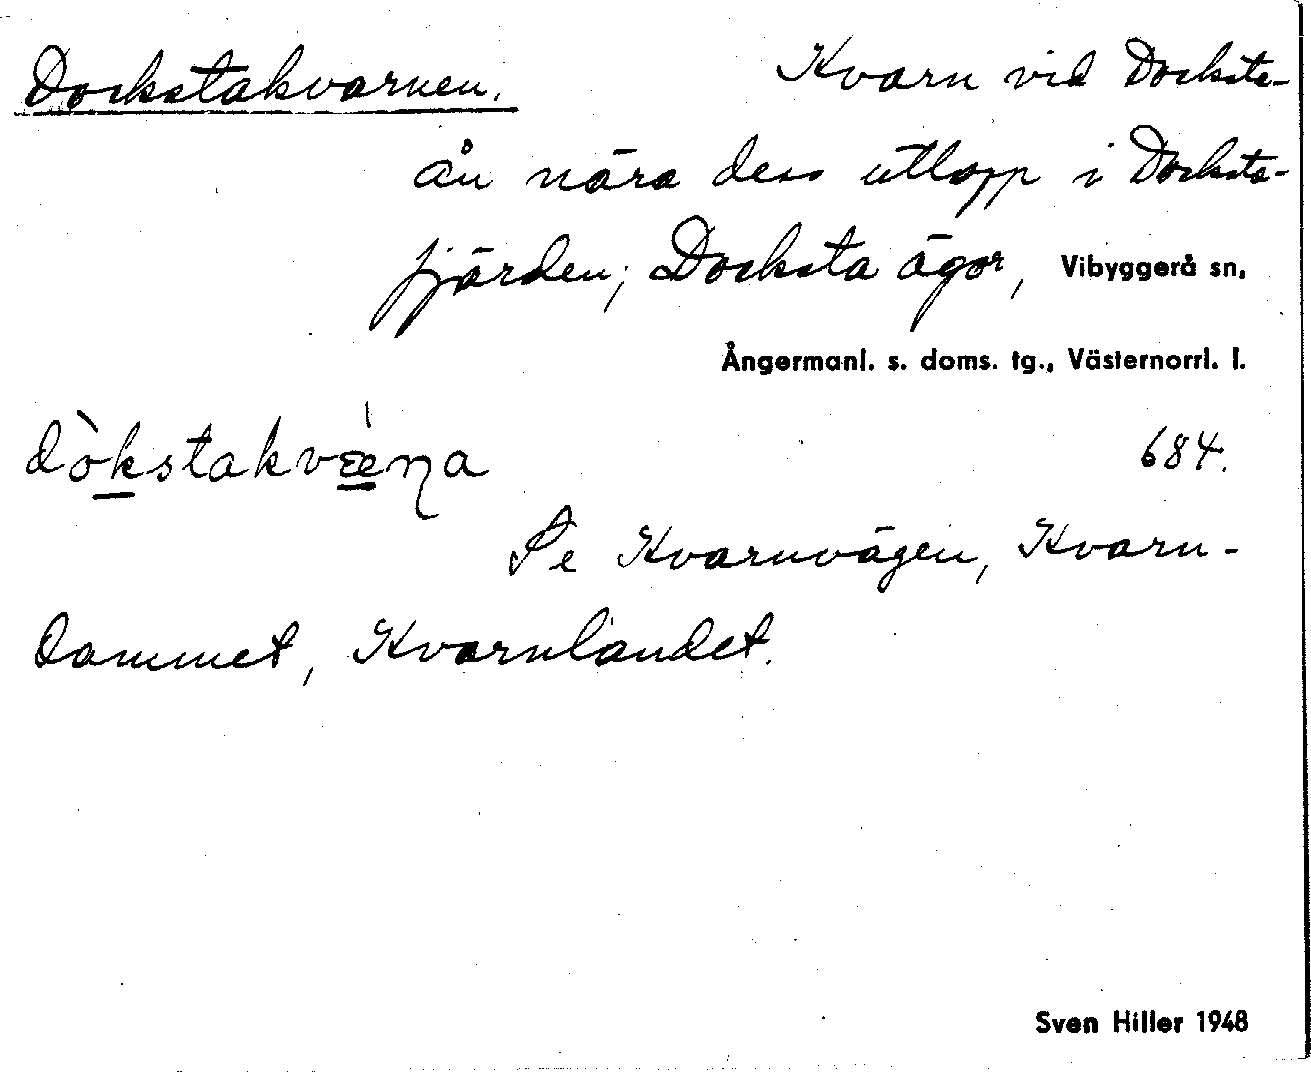 Dockstakvarnen. Kvarn vid Docksta-
ån nära dess utlopp i Docksta-
fjärden; Docksta ägor, Vibyggerå sn,
Ångermanl. s. doms. tg., Västernorrl. l.
dòkstakvæ̀ɳa 684.
Se Kvarnvägen, Kvarn-
dammet, Kvarnlandet.
Sven Hiller 1948